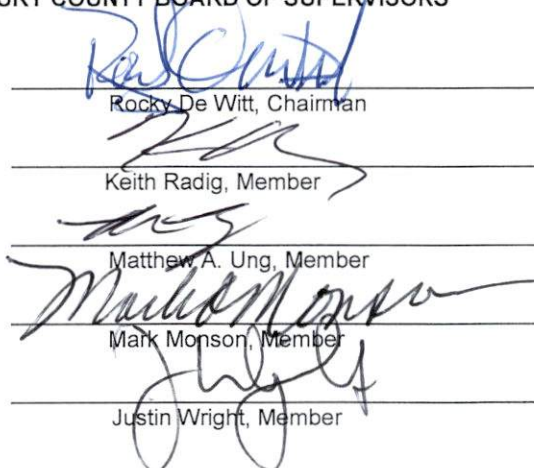 URY COUNTY BOARD OF SUPERVISORS
Rocky De Witt, Chairman
Keith Radig, Member
Matthew A. Ung, Member
Mark Monson
Mark Monson, Member
Justin Wright, Member